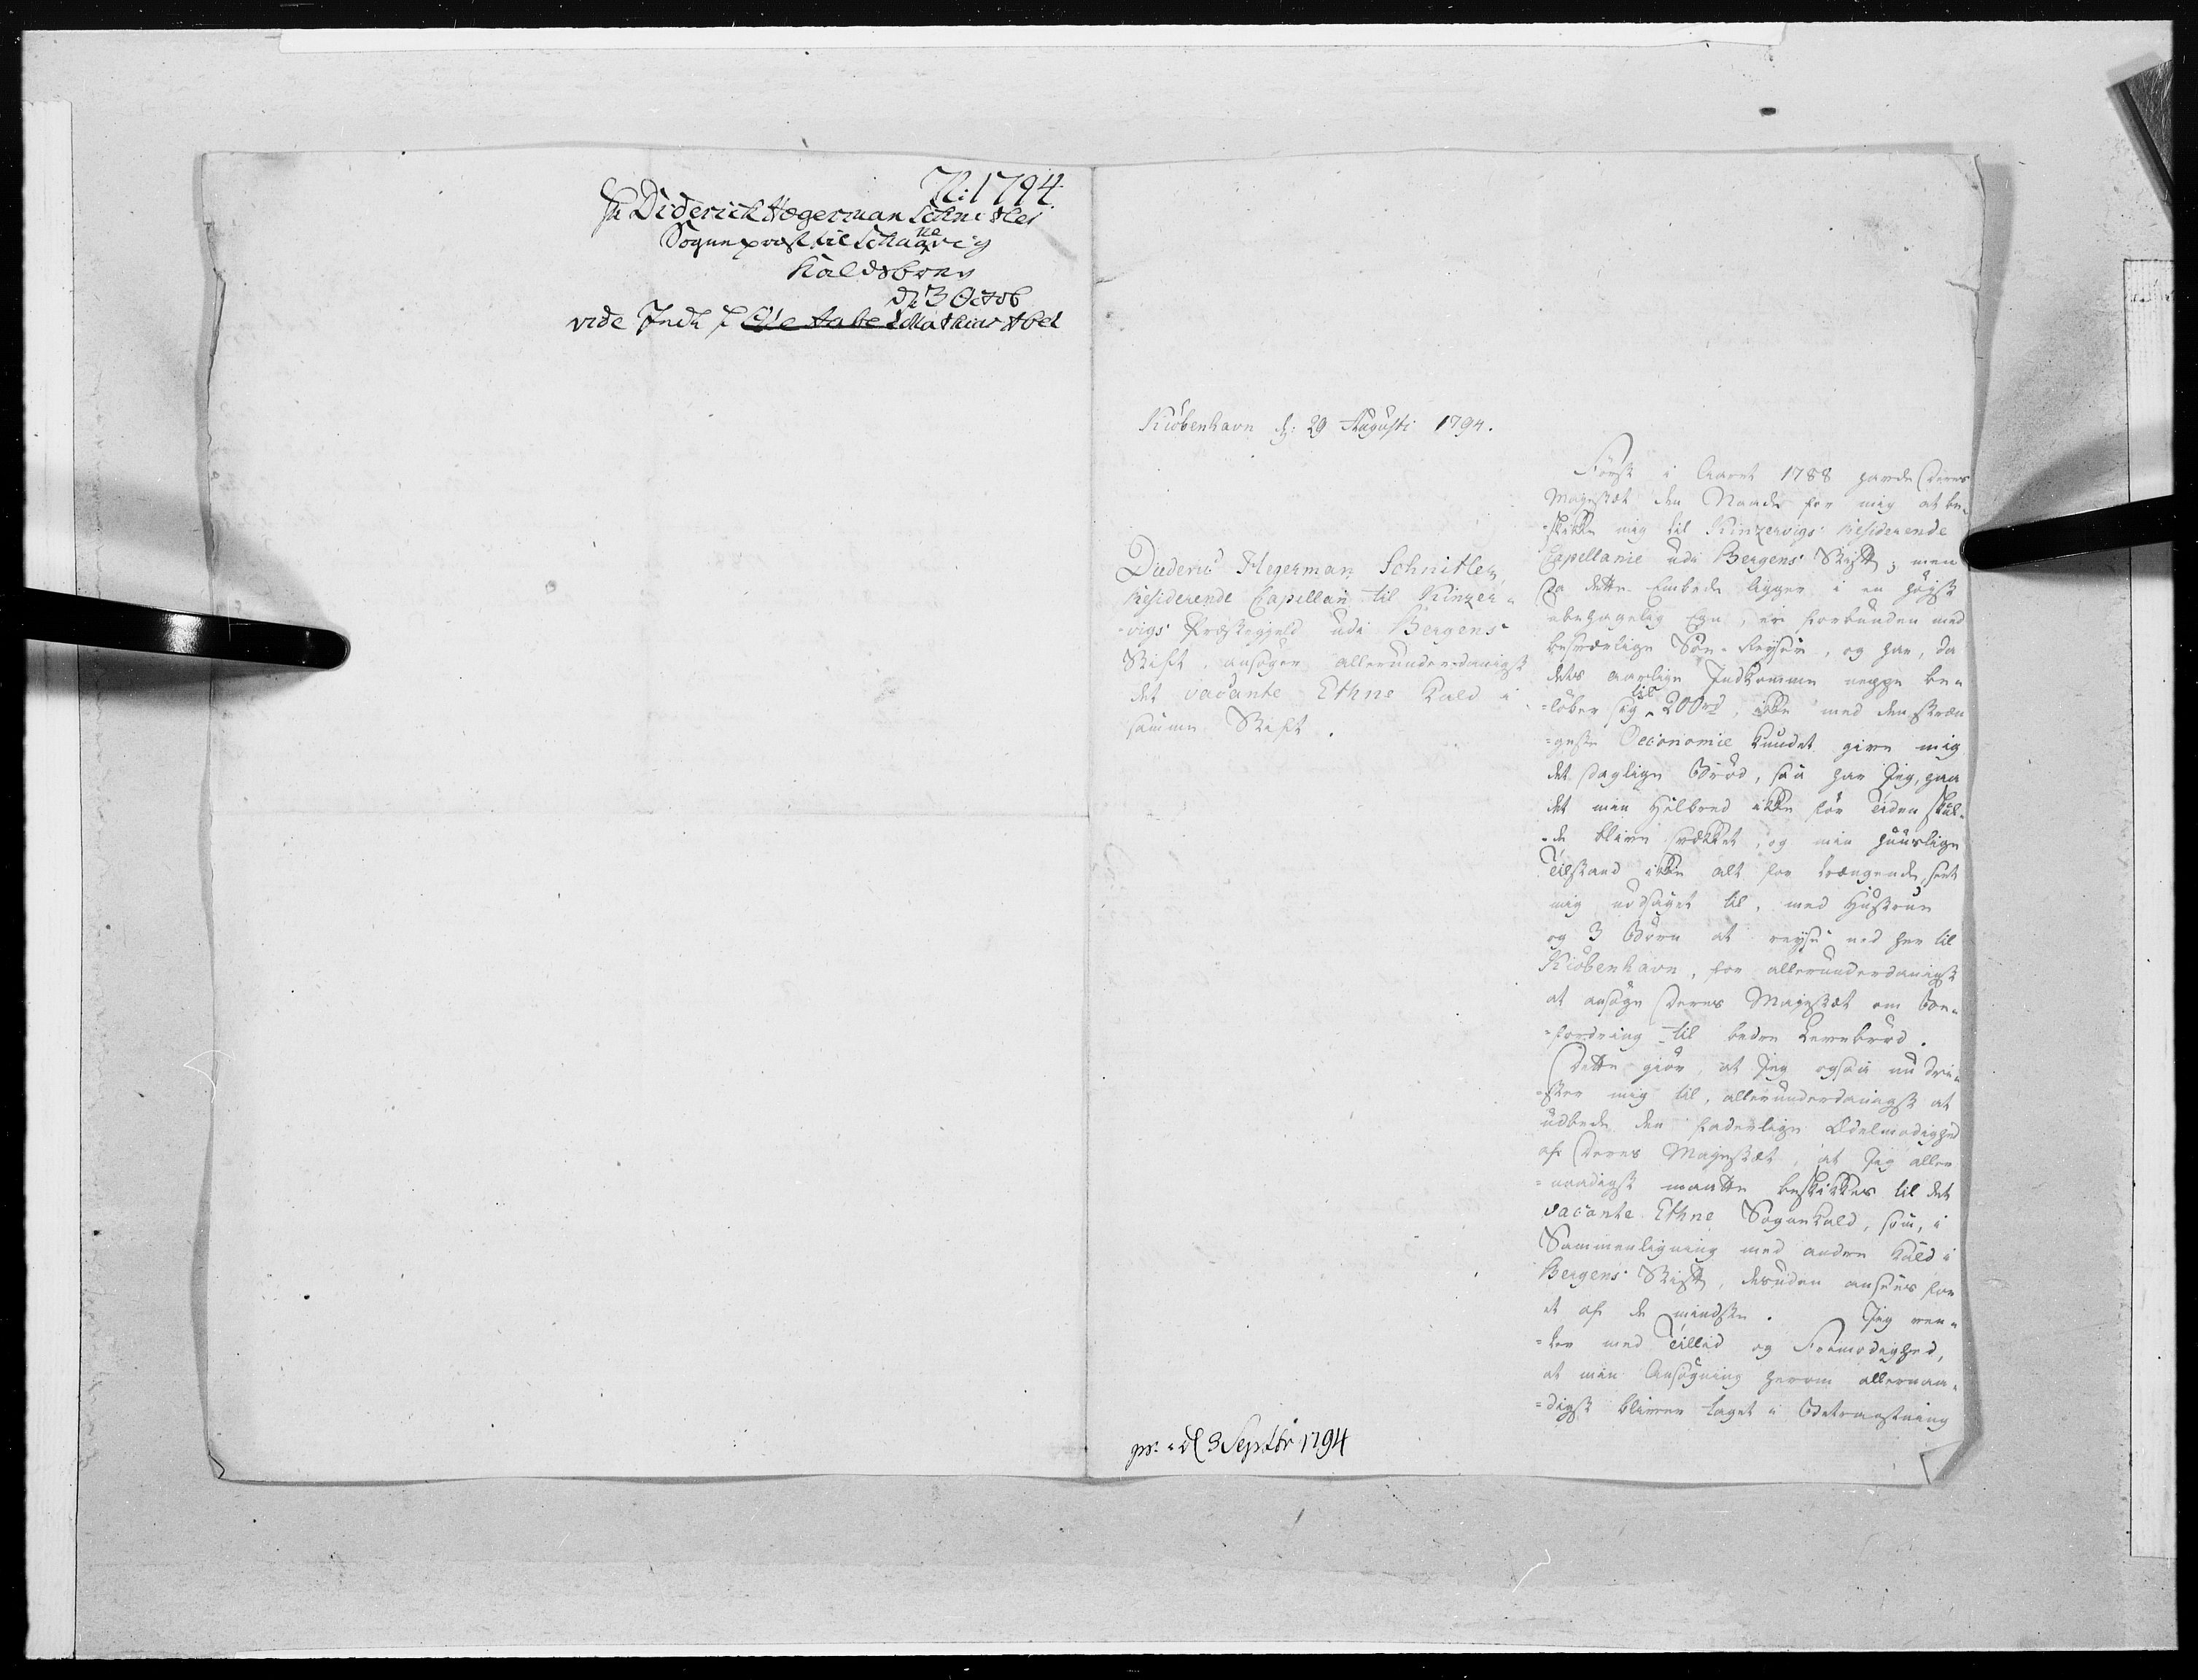 N: 1794.
Hr Diderich Hegerman Schnitler
Sognepræst til Schaanevig
Kaldsbrev
d 3 Octob
vide Indk f Ole Tabe Mathias Abel
Kiöbenhavn d: 29 Augusti 1794.
Diederic Hegerman Schnitler,
Residerende Capellan til Kinzer-
=vigs Præstegield udi Bergens
Stift, ansøger allerunderdanigst
det vacante Ethne Kald i
samme Stift.
Først i Aaret 1788 havde Deres
Majestæt den Naade for mig at be-
=skikke mig til Kinzervigs Residerende
Capellanie udi Bergens Stift; men
da dette Embede ligger i en høist
ubehagelig Egn, er forbunden med
besværlige Søe-Reyser, og har, da
dets aarlige Indkomme neppe be-
=løber sig til 200 rd, ikke med den stræn
=geste Oeconomie kundet give mig
det daglige Brød, saa har Jeg, paa
det min Helbred ikke før Tiden skul-
=de blive svækket, og min huuslige
Tilstand ikke alt for trængende, seet
mig nødsaget til, med Hustrue
og 3 Børn at reyse ned her til
Kiöbenhavn, for allerunderdanigst
at ansøge Deres Majestæt om Be-
=fordring til bedre Levebrød.
Dette giør, at Jeg ogsaa nu dri-
=ster mig til, allerunderdanigst at
udbede den faderlige Ædelmodighed
af Deres Majestæt, at Jeg aller
=naadigst maatte beskikkes til det
vacante Ethne Sognekald, som, i
Sammenligning med andre Kald i
Bergens Stift, desuden ansees for
et af de mindste. Jeg ven-
=ter med Tillid og Frimodighed,
at min Ansøgning herom allernaa-
=digst bliver taget i Betragtning
pr: d 3 Septbr 1794